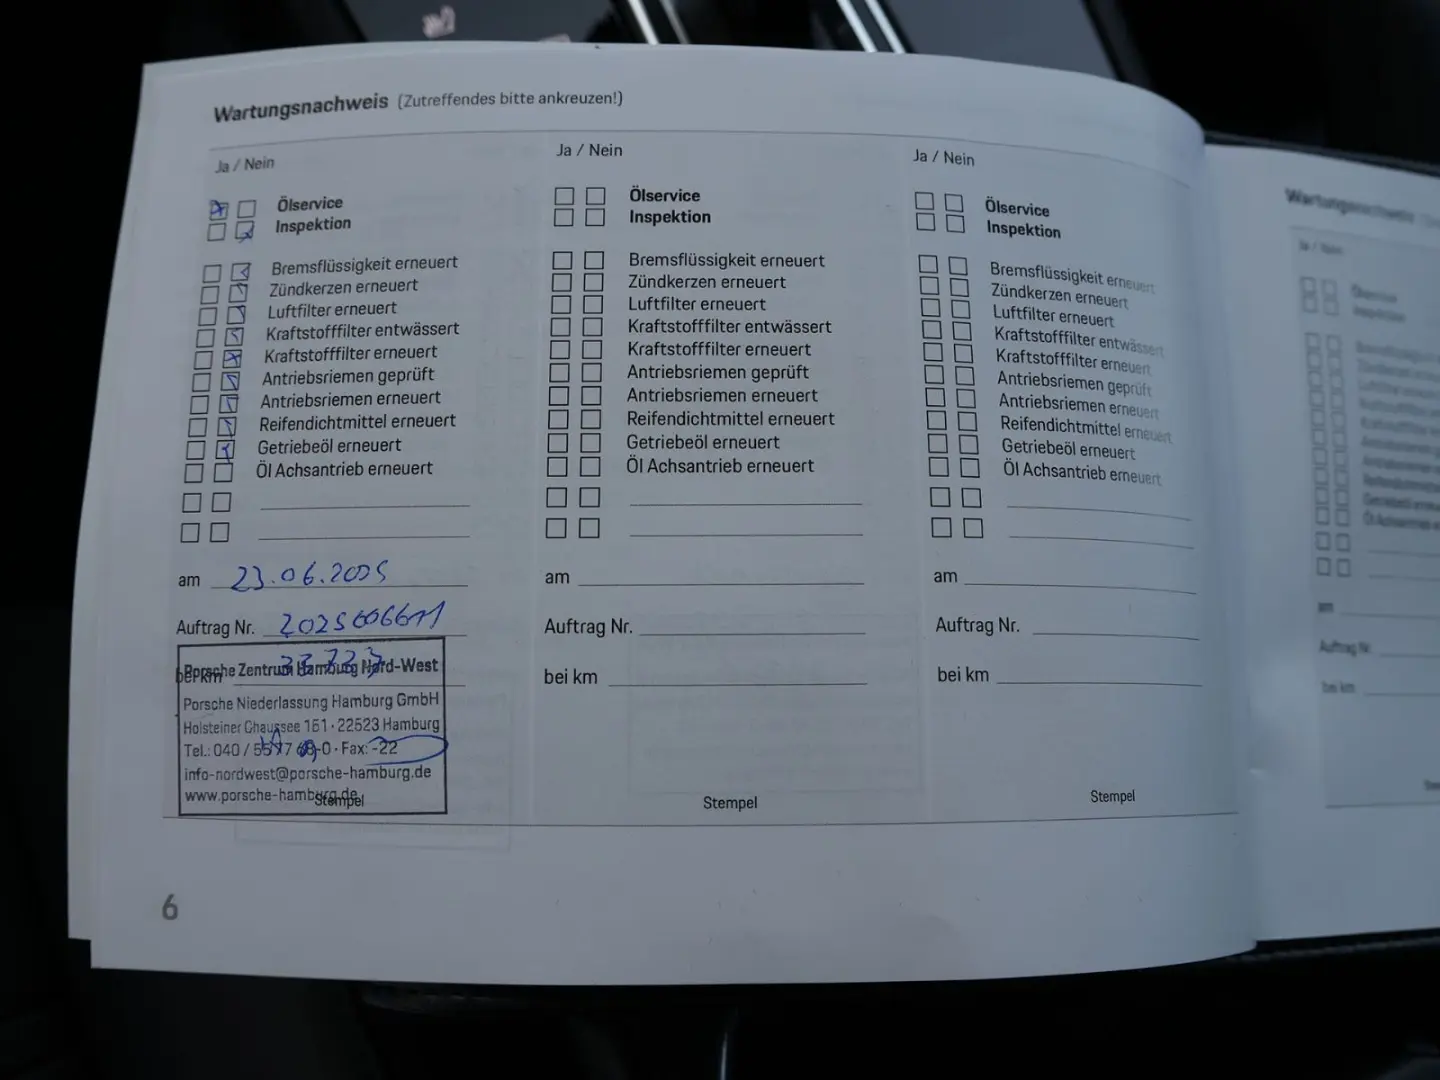 Wartungsnachweis (Zutreffendes bitte ankreuzen!)
Ja / Nein
Ölservice
Inspektion
Bremsflüssigkeit erneuert
Zündkerzen erneuert
Luftfilter erneuert
Kraftstofffilter entwässert
Kraftstofffilter erneuert
Antriebsriemen geprüft
Antriebsriemen erneuert
Reifendichtmittel erneuert
Getriebeöl erneuert
Öl Achsantrieb erneuert
am 23.06.2025
Auftrag Nr. 2025606611
bei km
Porsche Zentrum Hamburg Nord-West
Porsche Niederlassung Hamburg GmbH
Holsteiner Chaussee 161 · 22523 Hamburg
Tel.: 040 / Fax: -22
info-nordwest@porsche-hamburg.de
www.porsche-hamburg.de
Stempel
Ja / Nein
Ölservice
Inspektion
Bremsflüssigkeit erneuert
Zündkerzen erneuert
Luftfilter erneuert
Kraftstofffilter entwässert
Kraftstofffilter erneuert
Antriebsriemen geprüft
Antriebsriemen erneuert
Reifendichtmittel erneuert
Getriebeöl erneuert
Öl Achsantrieb erneuert
am
Auftrag Nr.
bei km
Stempel
Ja / Nein
Ölservice
Inspektion
Bremsflüssigkeit erneuert
Zündkerzen erneuert
Luftfilter erneuert
Kraftstofffilter entwässert
Kraftstofffilter erneuert
Antriebsriemen geprüft
Antriebsriemen erneuert
Reifendichtmittel erneuert
Getriebeöl erneuert
Öl Achsantrieb erneuert
am
Auftrag Nr.
bei km
Stempel
6
Wartungsnachweis
Ja / Nein
Ölservice
Inspektion
am
Auftrag Nr.
bei km